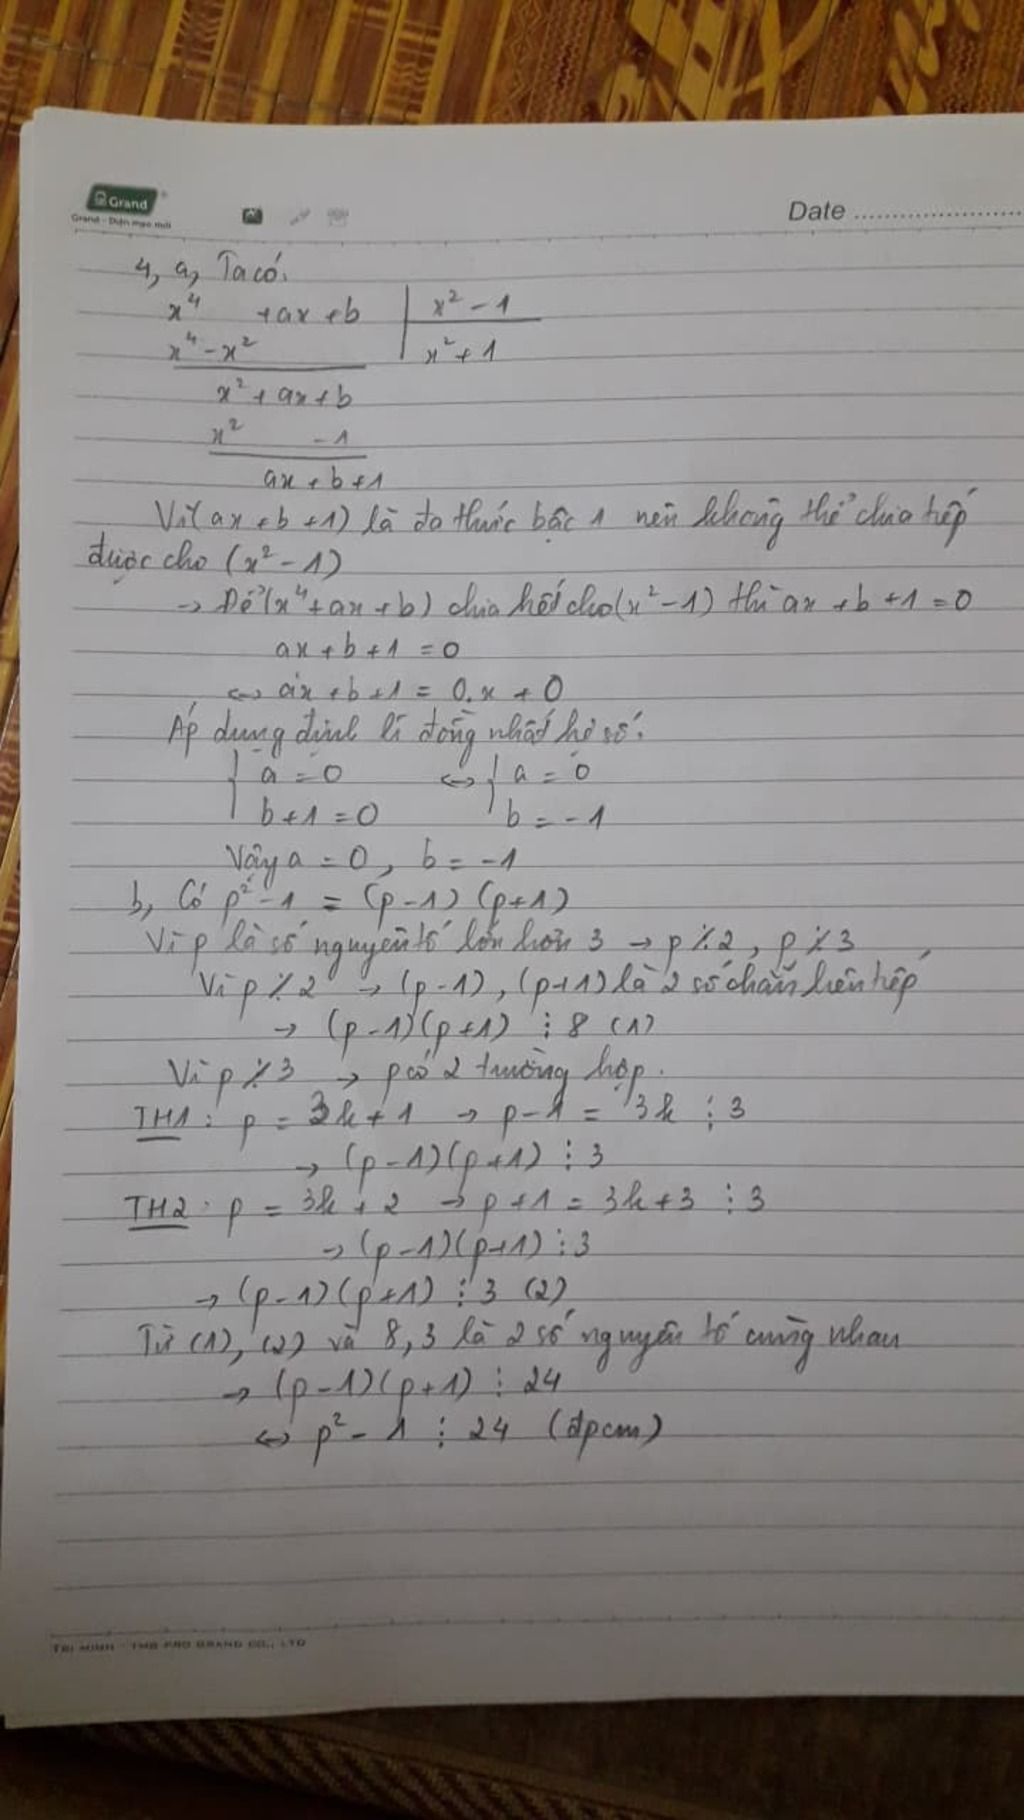 Grand
Grand - Diện mạo mới
Date
4, a, Ta có:
x⁴ + ax + b | x² - 1
x⁴ - x² | x² + 1
x² + ax + b
x² - 1
ax + b + 1
Vì (ax + b + 1) là đa thức bậc 1 nên không thể chia tiếp
được cho (x² - 1)
→ Để (x⁴ + ax + b) chia hết cho (x² - 1) thì ax + b + 1 = 0
ax + b + 1 = 0
⇔ ax + b + 1 = 0.x + 0
Áp dụng định lí đồng nhất hệ số:
{ a = 0 ⇔ { a = 0
{ b + 1 = 0 { b = -1
Vậy a = 0, b = -1
b, Có p² - 1 = (p - 1) (p + 1)
Vì p là số nguyên tố lớn hơn 3 → p ⋮̸ 2, p ⋮̸ 3
Vì p ⋮̸ 2 → (p - 1), (p + 1) là 2 số chẵn liên tiếp
→ (p - 1)(p + 1) ⋮ 8 (1)
Vì p ⋮̸ 3 → p có 2 trường hợp.
TH1: p = 3k + 1 → p - 1 = 3k ⋮ 3
→ (p - 1)(p + 1) ⋮ 3
TH2: p = 3k + 2 → p + 1 = 3k + 3 ⋮ 3
→ (p - 1)(p + 1) ⋮ 3
→ (p - 1)(p + 1) ⋮ 3 (2)
Từ (1), (2) và 8, 3 là 2 số nguyên tố cùng nhau
→ (p - 1)(p + 1) ⋮ 24
⇔ p² - 1 ⋮ 24 (đpcm)
TRI MINH - TMG PRO GRAND CO., LTD